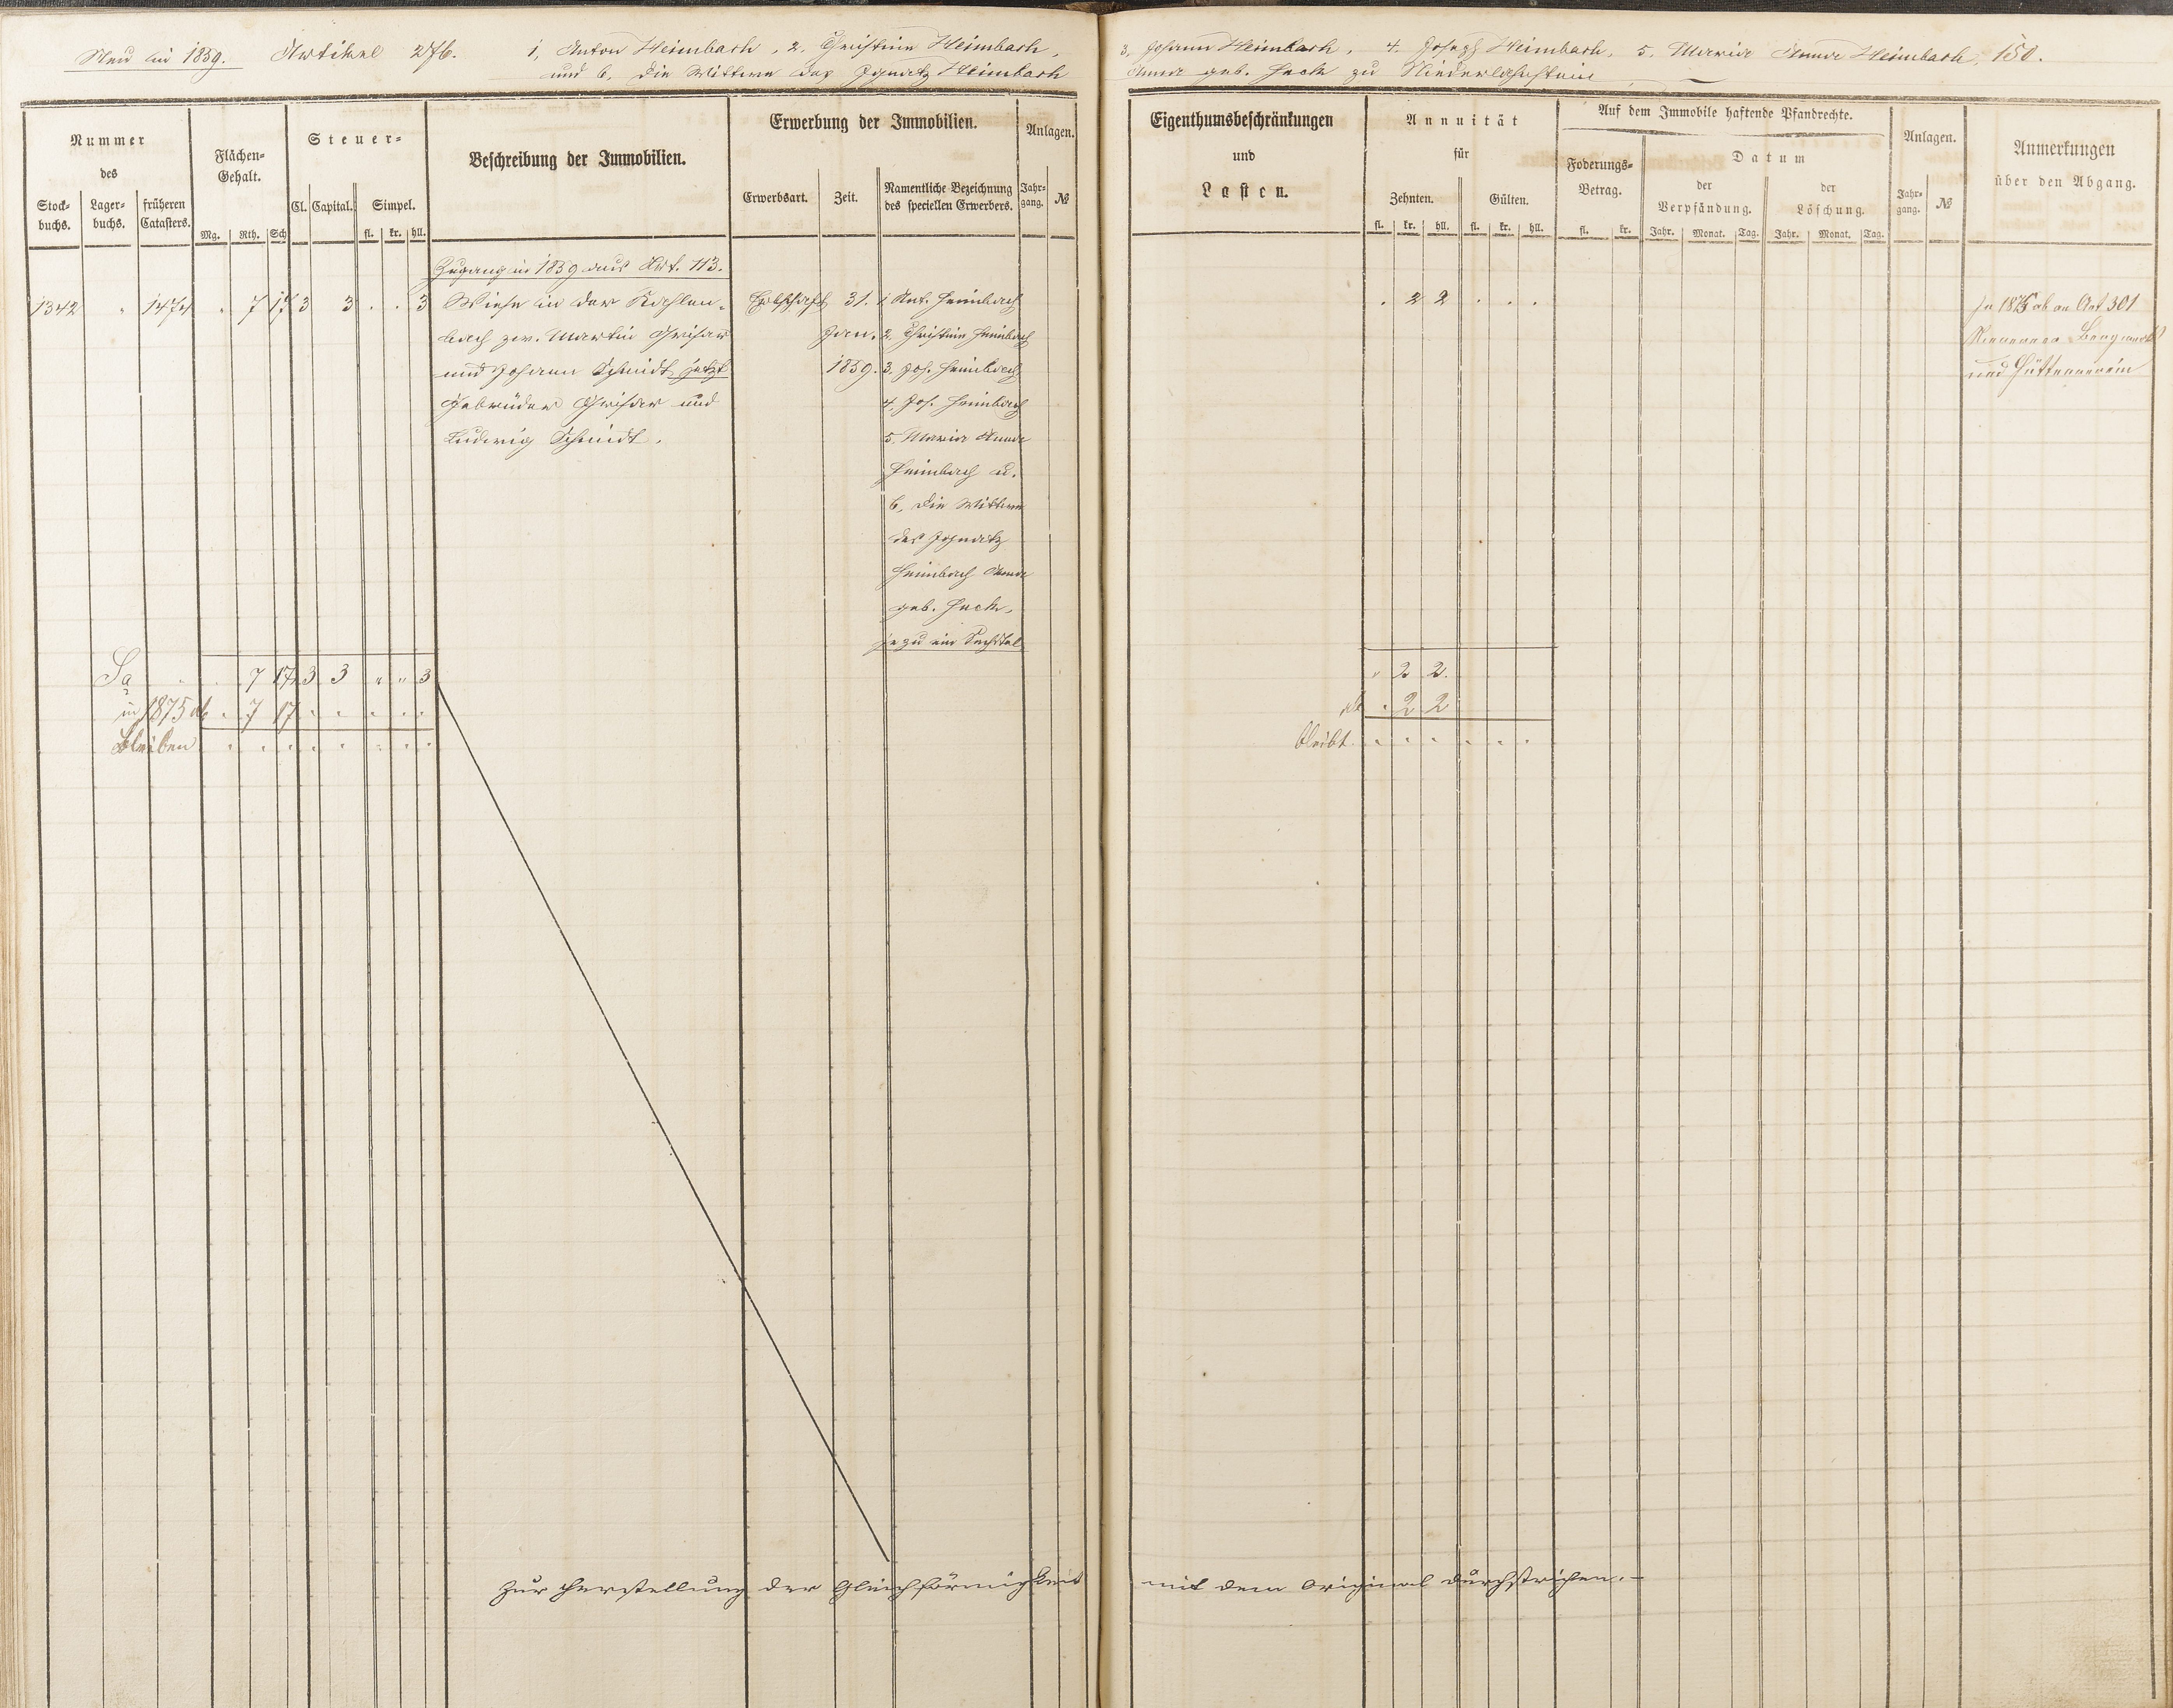 Neu in 1859. Artikel 276. 1, Anton Heimbach, 2. Christine Heimbach,
und 6. die Wittwe des Ignatz Heimbach
3. Johann Heimbach, 4. Joseph Heimbach, 5. Maria Anna Heimbach, 150.
Anna geb. Hack zu Niederlahnstein
Nummer
des
Stock-
buchs.
Lager-
buchs.
früheren
Catasters.
Flächen-
Gehalt.
Mg. Rth. Sch
Steuer-
Cl. Capital. Simpel.
fl. kr. hll.
Beschreibung der Immobilien.
Erwerbung der Immobilien.
Erwerbsart. Zeit.
Namentliche Bezeichnung
des speciellen Erwerbers.
Anlagen.
Jahr-
gang.
№
Eigenthumsbeschränkungen
und
Lasten.
Annuität
für
Zehnten. Gülten.
fl. kr. hll. fl. kr. hll.
Auf dem Immobile haftende Pfandrechte.
Foderungs-
Betrag.
fl. kr.
Datum
der
Verpfändung.
der
Löschung.
Jahr. Monat. Tag. Jahr. Monat. Tag.
Anlagen.
Jahr-
gang.
№
Anmerkungen
über den Abgang.
Zugang in 1859 aus Art. 113.
1342 " 1474 . 7 17 3 3 . . 3 Wiese in der Kachlen-
bach zw. Martin Grisar
und Johann Schmidt jetzt
Gebrüder Grisar und
Ludwig Schmidt.
Erbschaft 31.
Jan.
1859.
1. Ant. Heimbach
2. Christine Heimbach
3. Joh. Heimbach
4. Jos. Heimbach
5. Maria Anna
Heimbach u.
6. die Wittwe
des Ignatz
Heimbach Anna
geb. Hack,
je zu ein Sechstel
. 2 2 . . .
In 1875 ab an Art 301
Bergwerks
und Hüttenverein
Sa . . 7 17 3 3 " " 3
in 1875 ab . 7 17 . . . . .
Bleiben . . . . . . . .
" 2 2.
ab . 2 2
bleibt . . . . . .
Zur Herstellung der Gleichförmigkeit mit dem Original durchstrichen.–